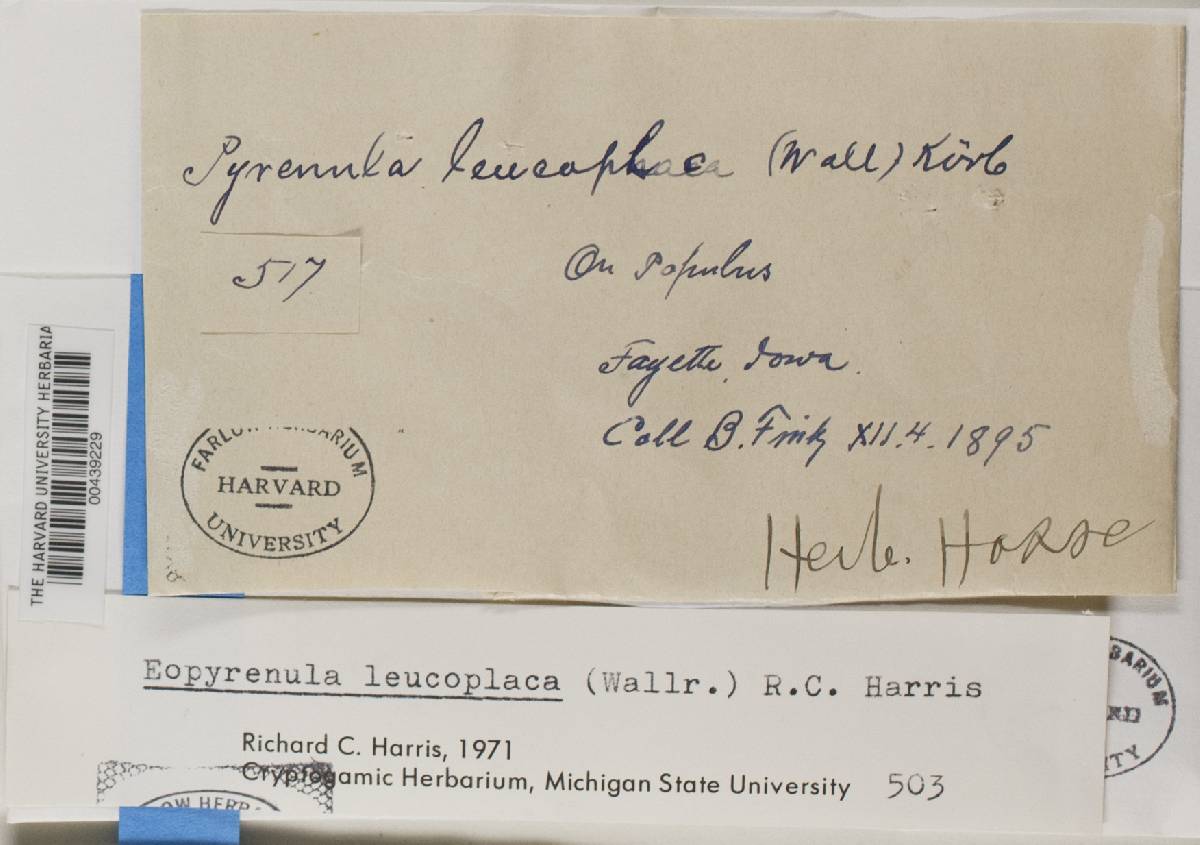 Pyrenula leucoplaca (Wall) Körb
517
On Populus
Fayette, Iowa.
Coll B. Fink XII.4.1895
FARLOW HERBARIUM
HARVARD
UNIVERSITY
Herb. Hasse
THE HARVARD UNIVERSITY HERBARIA
00439229
Eopyrenula leucoplaca (Wallr.) R.C. Harris
Richard C. Harris, 1971
Cryptogamic Herbarium, Michigan State University 503
OW HERB
BARIUM
RD
ITY